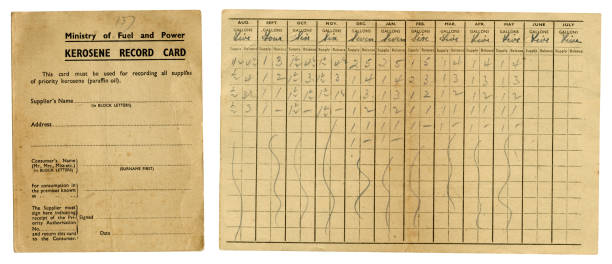 157
Ministry of Fuel and Power
KEROSENE RECORD CARD
This card must be used for recording all supplies
of priority kerosene (paraffin oil).
Supplier's Name
(in BLOCK LETTERS)
Address
Consumer's Name
(Mr., Mrs., Miss, etc.)
(in BLOCK LETTERS) (SURNAME FIRST)
For consumption in
the premises known
as
The Supplier must
sign here indicating
receipt of the Pri-
ority Authorisation
No.
and return this card
to the Consumer.
Signed
Date
AUG. SEPT. OCT. NOV. DEC. JAN. FEB. MAR. APR. MAY JUNE JULY
GALLONS GALLONS GALLONS GALLONS GALLONS GALLONS GALLONS GALLONS GALLONS GALLONS GALLONS GALLONS
Five Four Six Six Seven Seven Six Five Five Five Five Five
Supply Balance Supply Balance Supply Balance Supply Balance Supply Balance Supply Balance Supply Balance Supply Balance Supply Balance Supply Balance Supply Balance Supply Balance
1 3 2 5 2 5 1 5 1 4 1 4 1 4
1 2 1 4 1 4 2 3 1 3 1 3 1 3
1 1 1 3 1 3 1 2 1 2 1 2 1 2
1 - 1 - 1 - 1 2 1 2 1 1 1 1 1 1 1 1
1 1 1 1 1 - 1 - 1 - 1 -
1 - 1 -